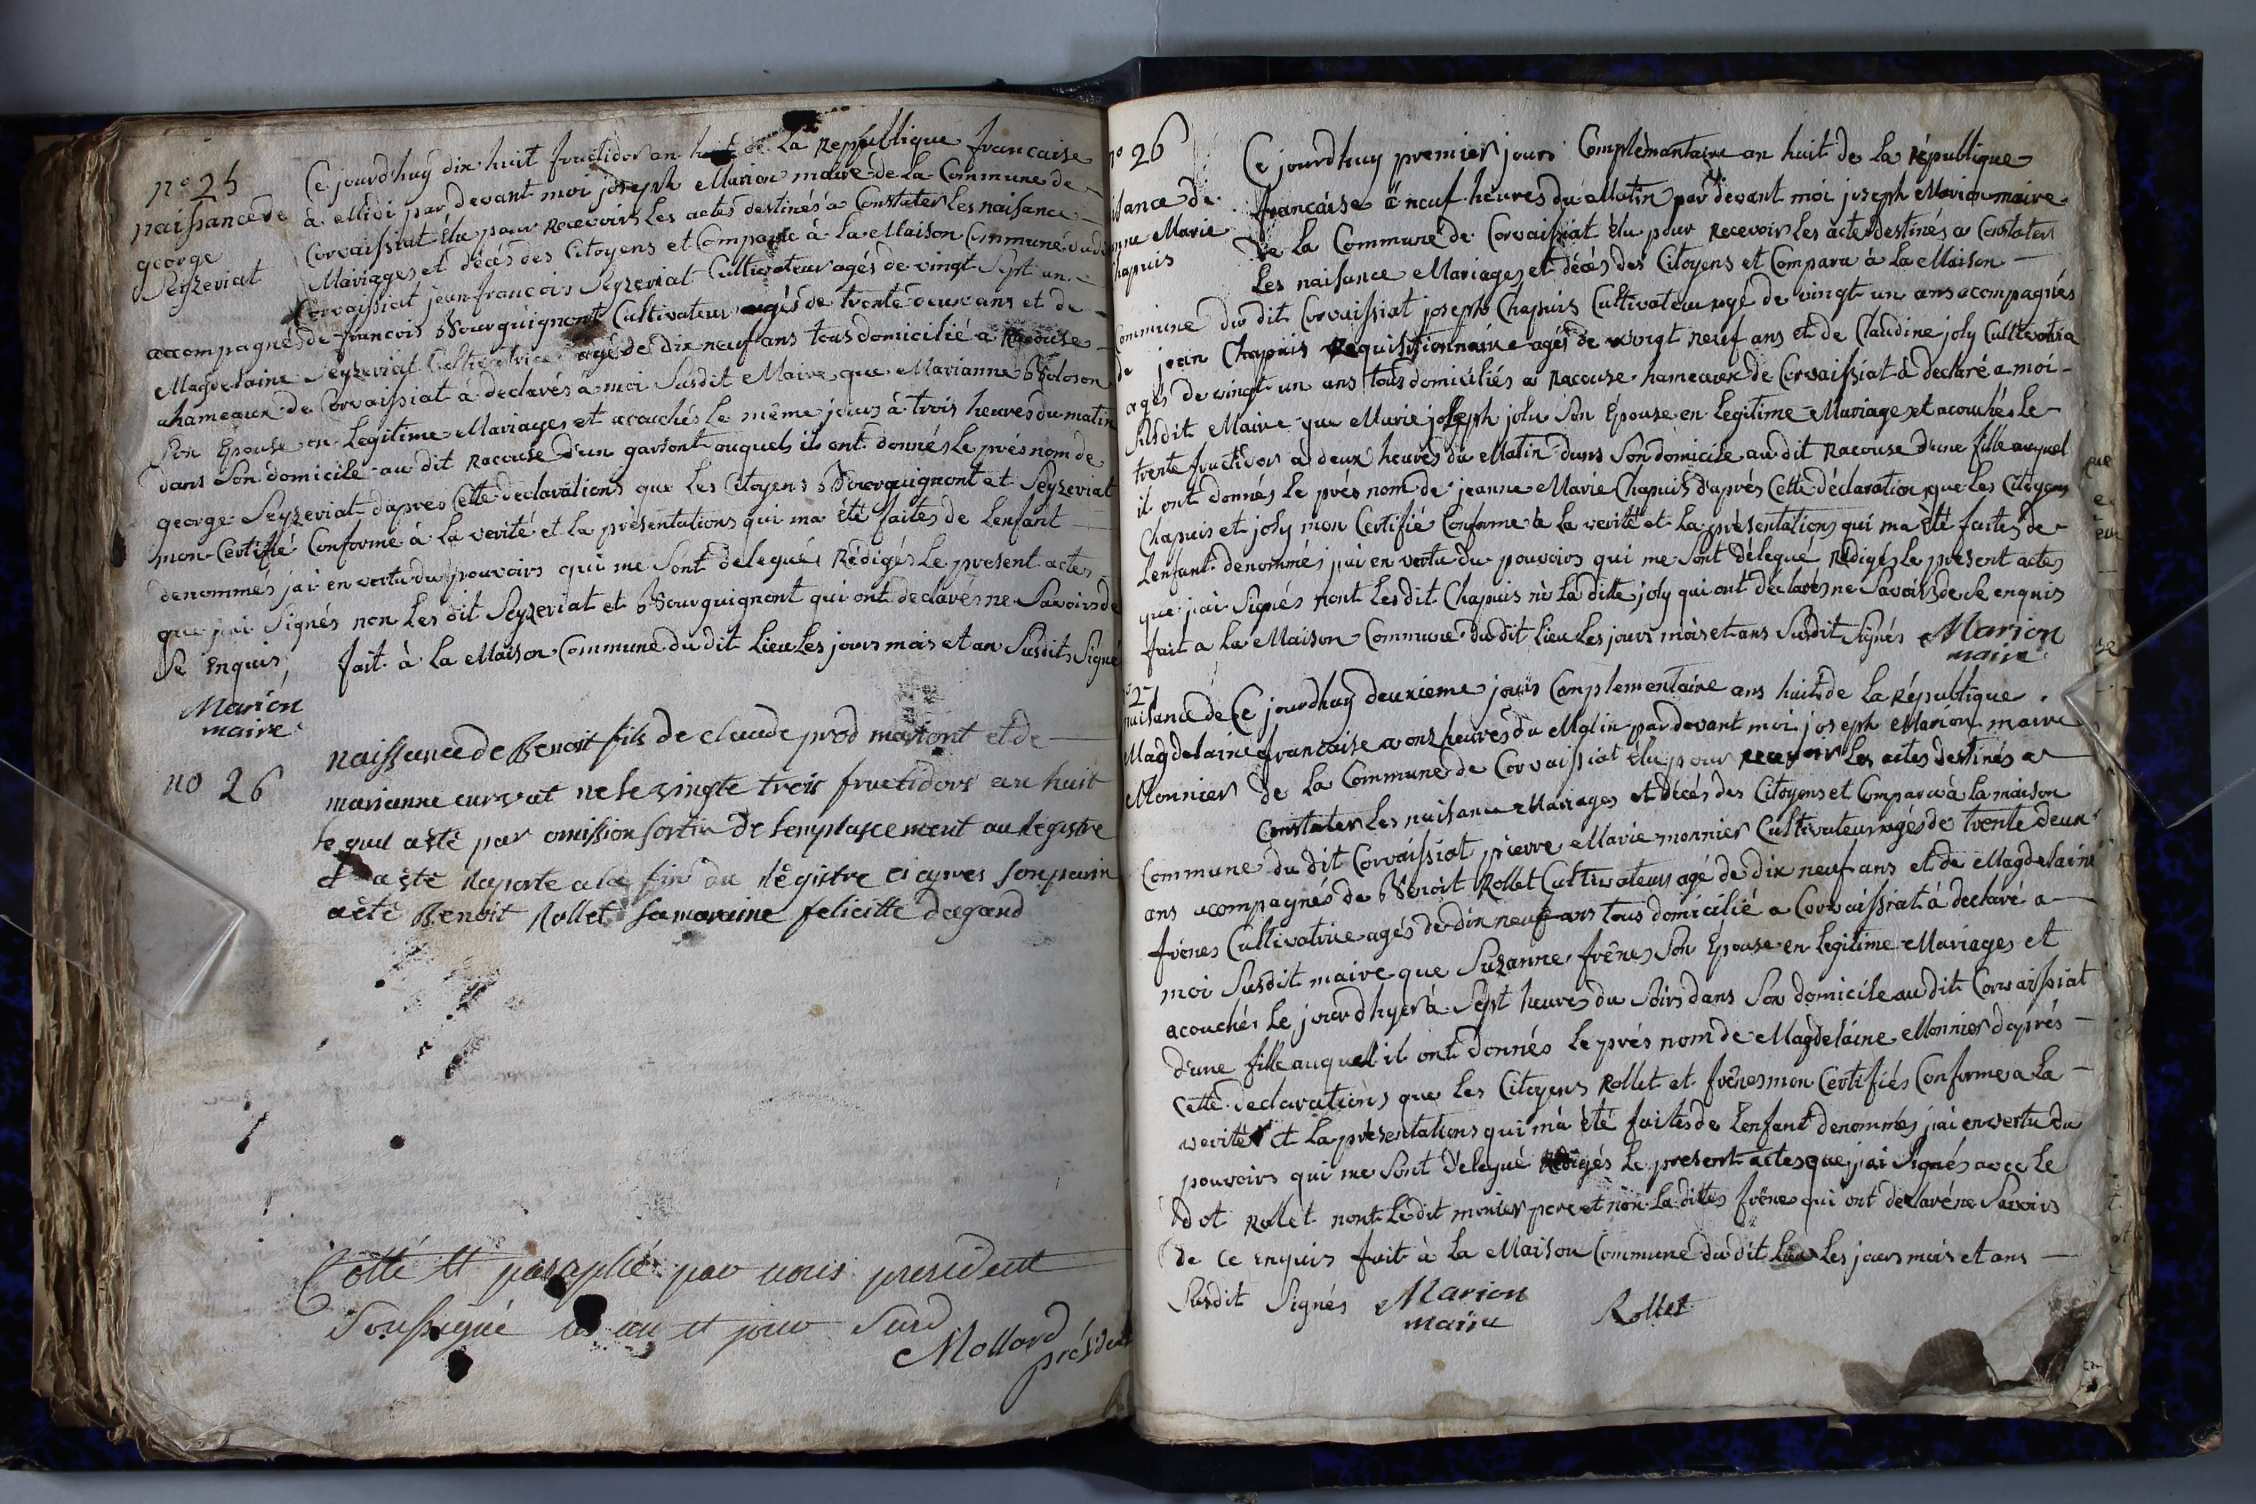 n° 25
naissance de
george
Seyzeriat
Ce jourd'huy dix huit fructidor an huit de La Republique francaise
à Midi par devant moi joseph Marion maire de La Commune de
Corvaissiat élu pour Recevoir Les actes destinés a Constater Les naisance
Mariages et décés des Citoyens et Comparu à La Maison Commune dudit
Corvaissiat jean francois Seyzeriat Cultivateur agés de vingt Sept an
accompagnés de francois Bourguignont Cultivateur agés de trente deux ans et de
Magdelaine Seyzeriat Cultivatrice agé de Dix neuf ans tous domicilié a Racouse
hameaux de Corvaissiat à declarés à moi Susdit Maire que Marianne Boloson
Son Epouse en Legitime Mariages et acouchés Le même jours à trois heures du matin
dans Son domicile au dit Racouse d'un garsont auquels ils ont donnés Le prés nom de
george Seyzeriat dapres Cette declarations que Les Citoyens Bourguignont et Seyzeriat
mon Certifié Conforme à La verité et La présentations qui ma été faites de Lenfant
denommés jai en vertu du pouvoirs qui me Sont délegués Rédigés Le present actes
que jai Signés non Les dit Seyzeriat et Bourguignont qui ont declarés ne Savoirs de
Se Enquis, fait à La Maison Commune du dit Lieu Les jours mois et an Susdits Signé
Marion
maire
no 26
naissance de Benoit fils de claude prod mariont et de
marianne curvat ne le vingte trois fructidors an huit
le quel a été par omission sortir de lemplascement au Registre
et a été Raporte a la fin du Régistre ci apres Son parin
a été Benoit Rollet Sa maraine felicitte dagand
Cotté et paraphé par nous president
Soussigné les an et jour Susd
Mollard
président
n° 26
isance de
nne Marie
hapuis
Ce jourdhuy premier jours Complémantaire an huit de La République
francaise à neuf heures du Matin par devant moi joseph Marion maire
de La Commune de Corvaissiat élu pour Recevoir Les acte destinés a Constater
Les naisance Mariages et décés des Citoyens et Comparu à La Maison
Commune du dit Corvaissiat joseph Chapuis Cultivateur agé de vingt un ans acompagnés
de jean Chapuis Requisitionnaire agés de vingt neuf ans et de Claudine joly Cultivatrice
agés de vingt un ans tous domiciliés a Racouse hameaux de Corvaissiat à declaré a moi
susdit Maire que Marie joseph joly Son Epouse en Legitime Mariage et acouchés Le
trente fructidors à deux heures du Matin dans Son domicile au dit Racouse dune fille auquel
il ont donnés Le prés nom de jeanne Marie Chapuis d'aprés Cette déclaration que Les Citoyens
Chapuis et joly mon Certifié Conforme à La verité et La présentations qui ma été faites de
Lenfant denommés jai en vertu du pouvoirs qui me Sont délegué Rédigés Le présent actes
que jai Signés nont Lesdit Chapuis ni La ditte joly qui ont déclarés ne Savoirs de Se enquis
fait a La Maison Commune du dit Lieu Les jours mois et ans Susdit Signés Marion
maire
27
naisance de
Magdelaine
Monnier
Ce jourdhuy deuxieme jours Complementaire ans huit de La République
francaise a onz heures du Matin par devant moi joseph Marion maire
de La Commune de Corvaissiat élu pour recevoir Les actes destinés a
Constater Les naisance Mariages et décés des Citoyens et Comparu à La maison
Commune du dit Corvaissiat pierre Marie monnier Cultivateur agés de trente deux
ans acompagnés de Benoit Rollet Cultivateur agé de dix neuf ans et de Magdelaine
frênes Cultivatrice agés de dix neuf ans tous domicilié a Corvaissiat à declaré a
moi Susdit maire que Suzanne frênes Son Epouse en Legitime Mariages et
acouchés Le jourdhyer à Sept heures du Soirs dans Son domicile au dit Corvaissiat
d'une fille auquel il ont donnés Le prés nom de Magdelaine Monnier daprés
Cette déclarations que Les Citoyens Rollet et frênes mon Certifiés Conforme a La
verité et La présentations qui m'a été faites de Lenfant denommés jai en vertu du
pouvoirs qui me Sont délegué Rédigés Le present actes que jai Signés avec Le
dot Rollet nont Le dit monier pere et non La dittes frêne qui ont déclaré ne Savoirs
de Ce enquis fait à La Maison Commune du dit Lieu Les jours mois et ans
Susdit Signés Marion
maire
Rollet